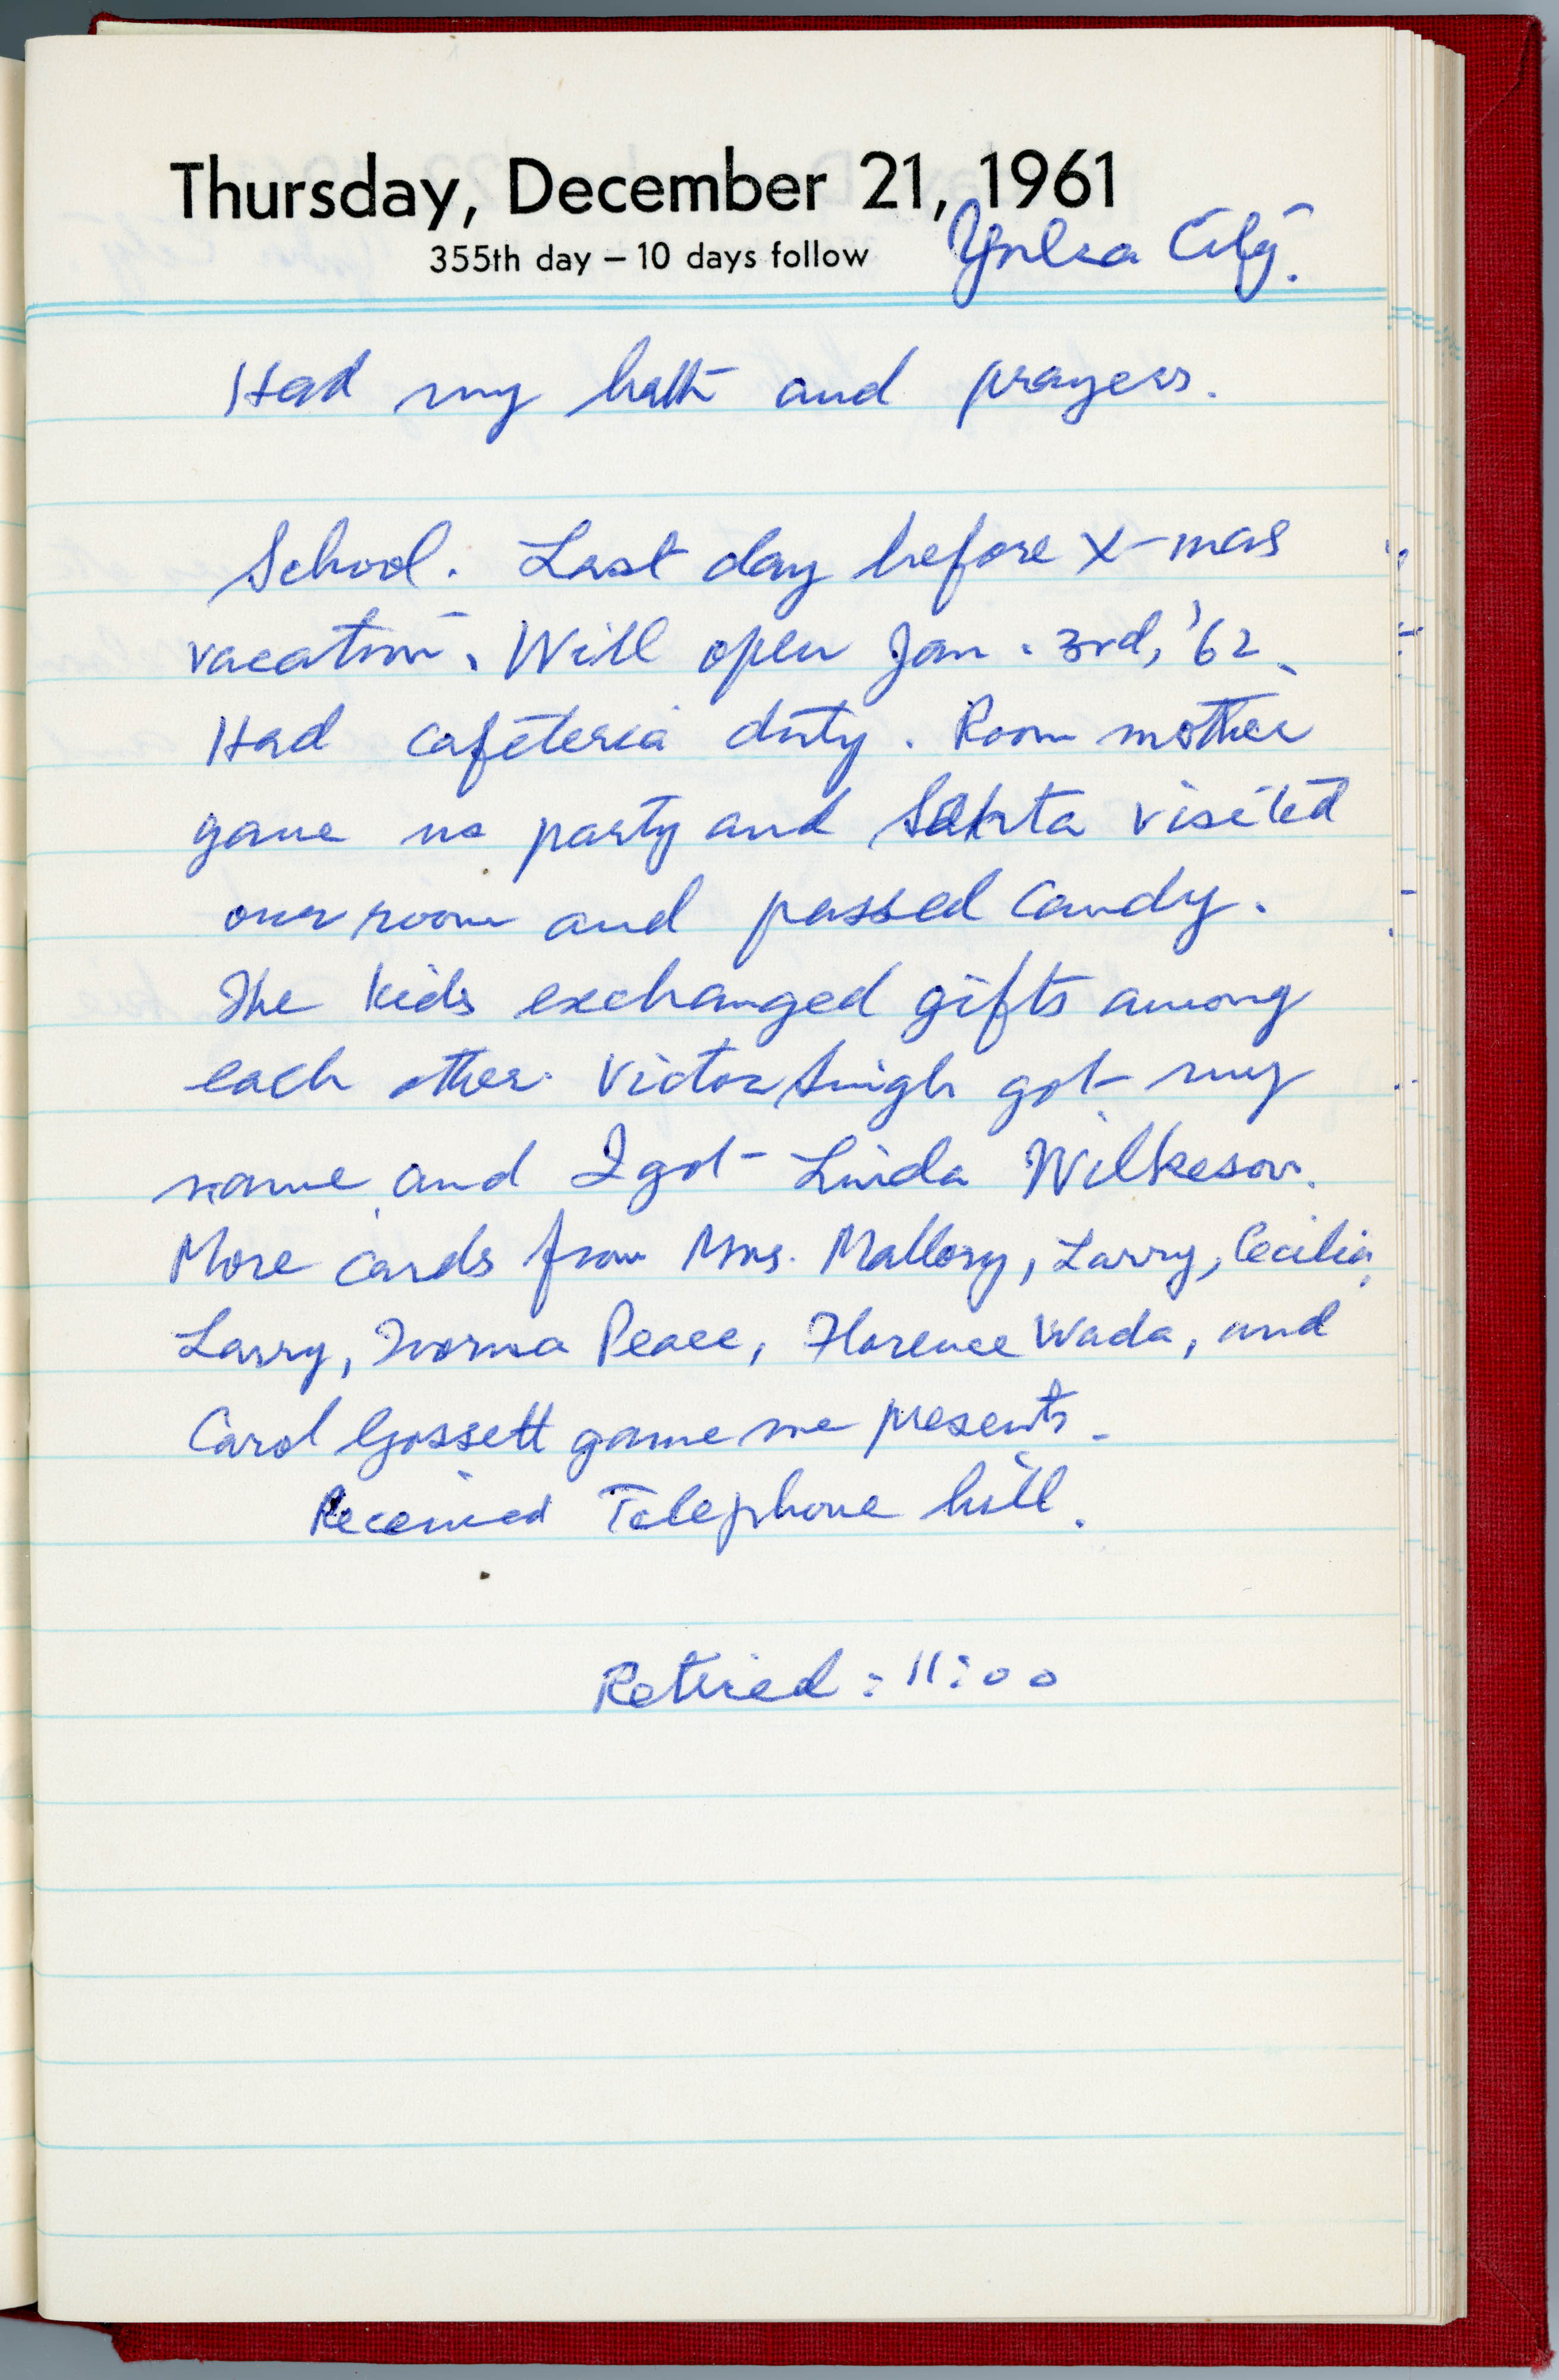 Thursday, December 21, 1961
355th day – 10 days follow
Yuba City.
Had my bath and prayers.
School. Last day before X-mas
vacation. Will open Jan. 3rd, '62.
Had cafeteria duty. Room mother
gave us party and Santa visited
our room and passed candy.
The kids exchanged gifts among
each other. Victor Singh got my
name and I got Linda Wilkeson.
More cards from Mrs. Mallory, Larry, Cecilia,
Larry, Norma Peace, Florence Wada, and
Carol Gossett gave me presents.
Received Telephone bill.
Retired: 11:00